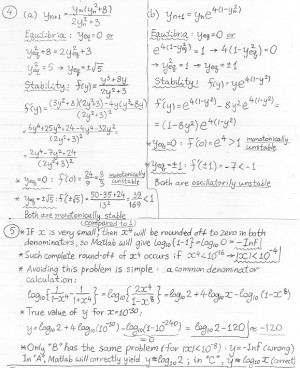 ④ (a) yₙ₊₁ = yₙ(yₙ²+8) / 2yₙ²+3
Equilibria: y_eq = 0 or
y²_eq+8 = 2y²_eq+3
y²_eq = 5 → y_eq = ±√5
Stability: f(y) = y³+8y / 2y²+3
f'(y) = (3y²+8)(2y²+3) - 4y(y³+8y) / (2y²+3)² =
= 6y⁴+25y²+24-4y⁴-32y² / (2y²+3)² =
= 2y⁴-7y²+24 / (2y²+3)²
* y_eq=0: f'(0) = 24/9 = 8/3 monotonically unstable
* y_eq=±√5: f'(±√5) = 50-35+24 / 13² = 39/169 < 1
Both are monotonically stable
(b) yₙ₊₁ = yₙe^4(1-yₙ²)
Equilibria: y_eq=0 or
e^4(1-y²_eq) = 1 → 4(1-y²_eq)=0
y²_eq=1 → y_eq=±1
Stability: f(y) = ye^4(1-y²)
f'(y) = e^4(1-y²) - 8y²e^4(1-y²) =
= (1-8y²)e^4(1-y²)
* y_eq=0: f'(0)=e⁴>1 monotonically unstable
* y_eq=±1: f'(±1)=-7<-1
Both are oscillatorily unstable
⑤ * If x is very small (compared to 1) then x⁴ will be rounded off to zero in both
denominators, so Matlab will give log₁₀{1-1} = log₁₀0 = -Inf
* Such complete round-off of x⁴ occurs if x⁴<10⁻¹⁶ → |x|<10⁻⁴
* Avoiding this problem is simple: a common denominator
calculation:
log₁₀{1/1-x⁴ - 1/1+x⁴} = log₁₀{2x⁴/1-x⁸} = log₁₀2+4log₁₀x-log₁₀(1-x⁸)
* True value of y for x=10⁻³⁰:
y = log₁₀2+4log₁₀(10⁻³⁰)-log₁₀(1-10⁻²⁴⁰) = log₁₀2-120 ≈ -120
≈0
* Only "B" has the same problem (for |x|<10⁻⁸): y=-Inf (wrong)
In "A", Matlab will correctly yield y≈log₁₀2; in "C", y≈log₁₀x (correct)